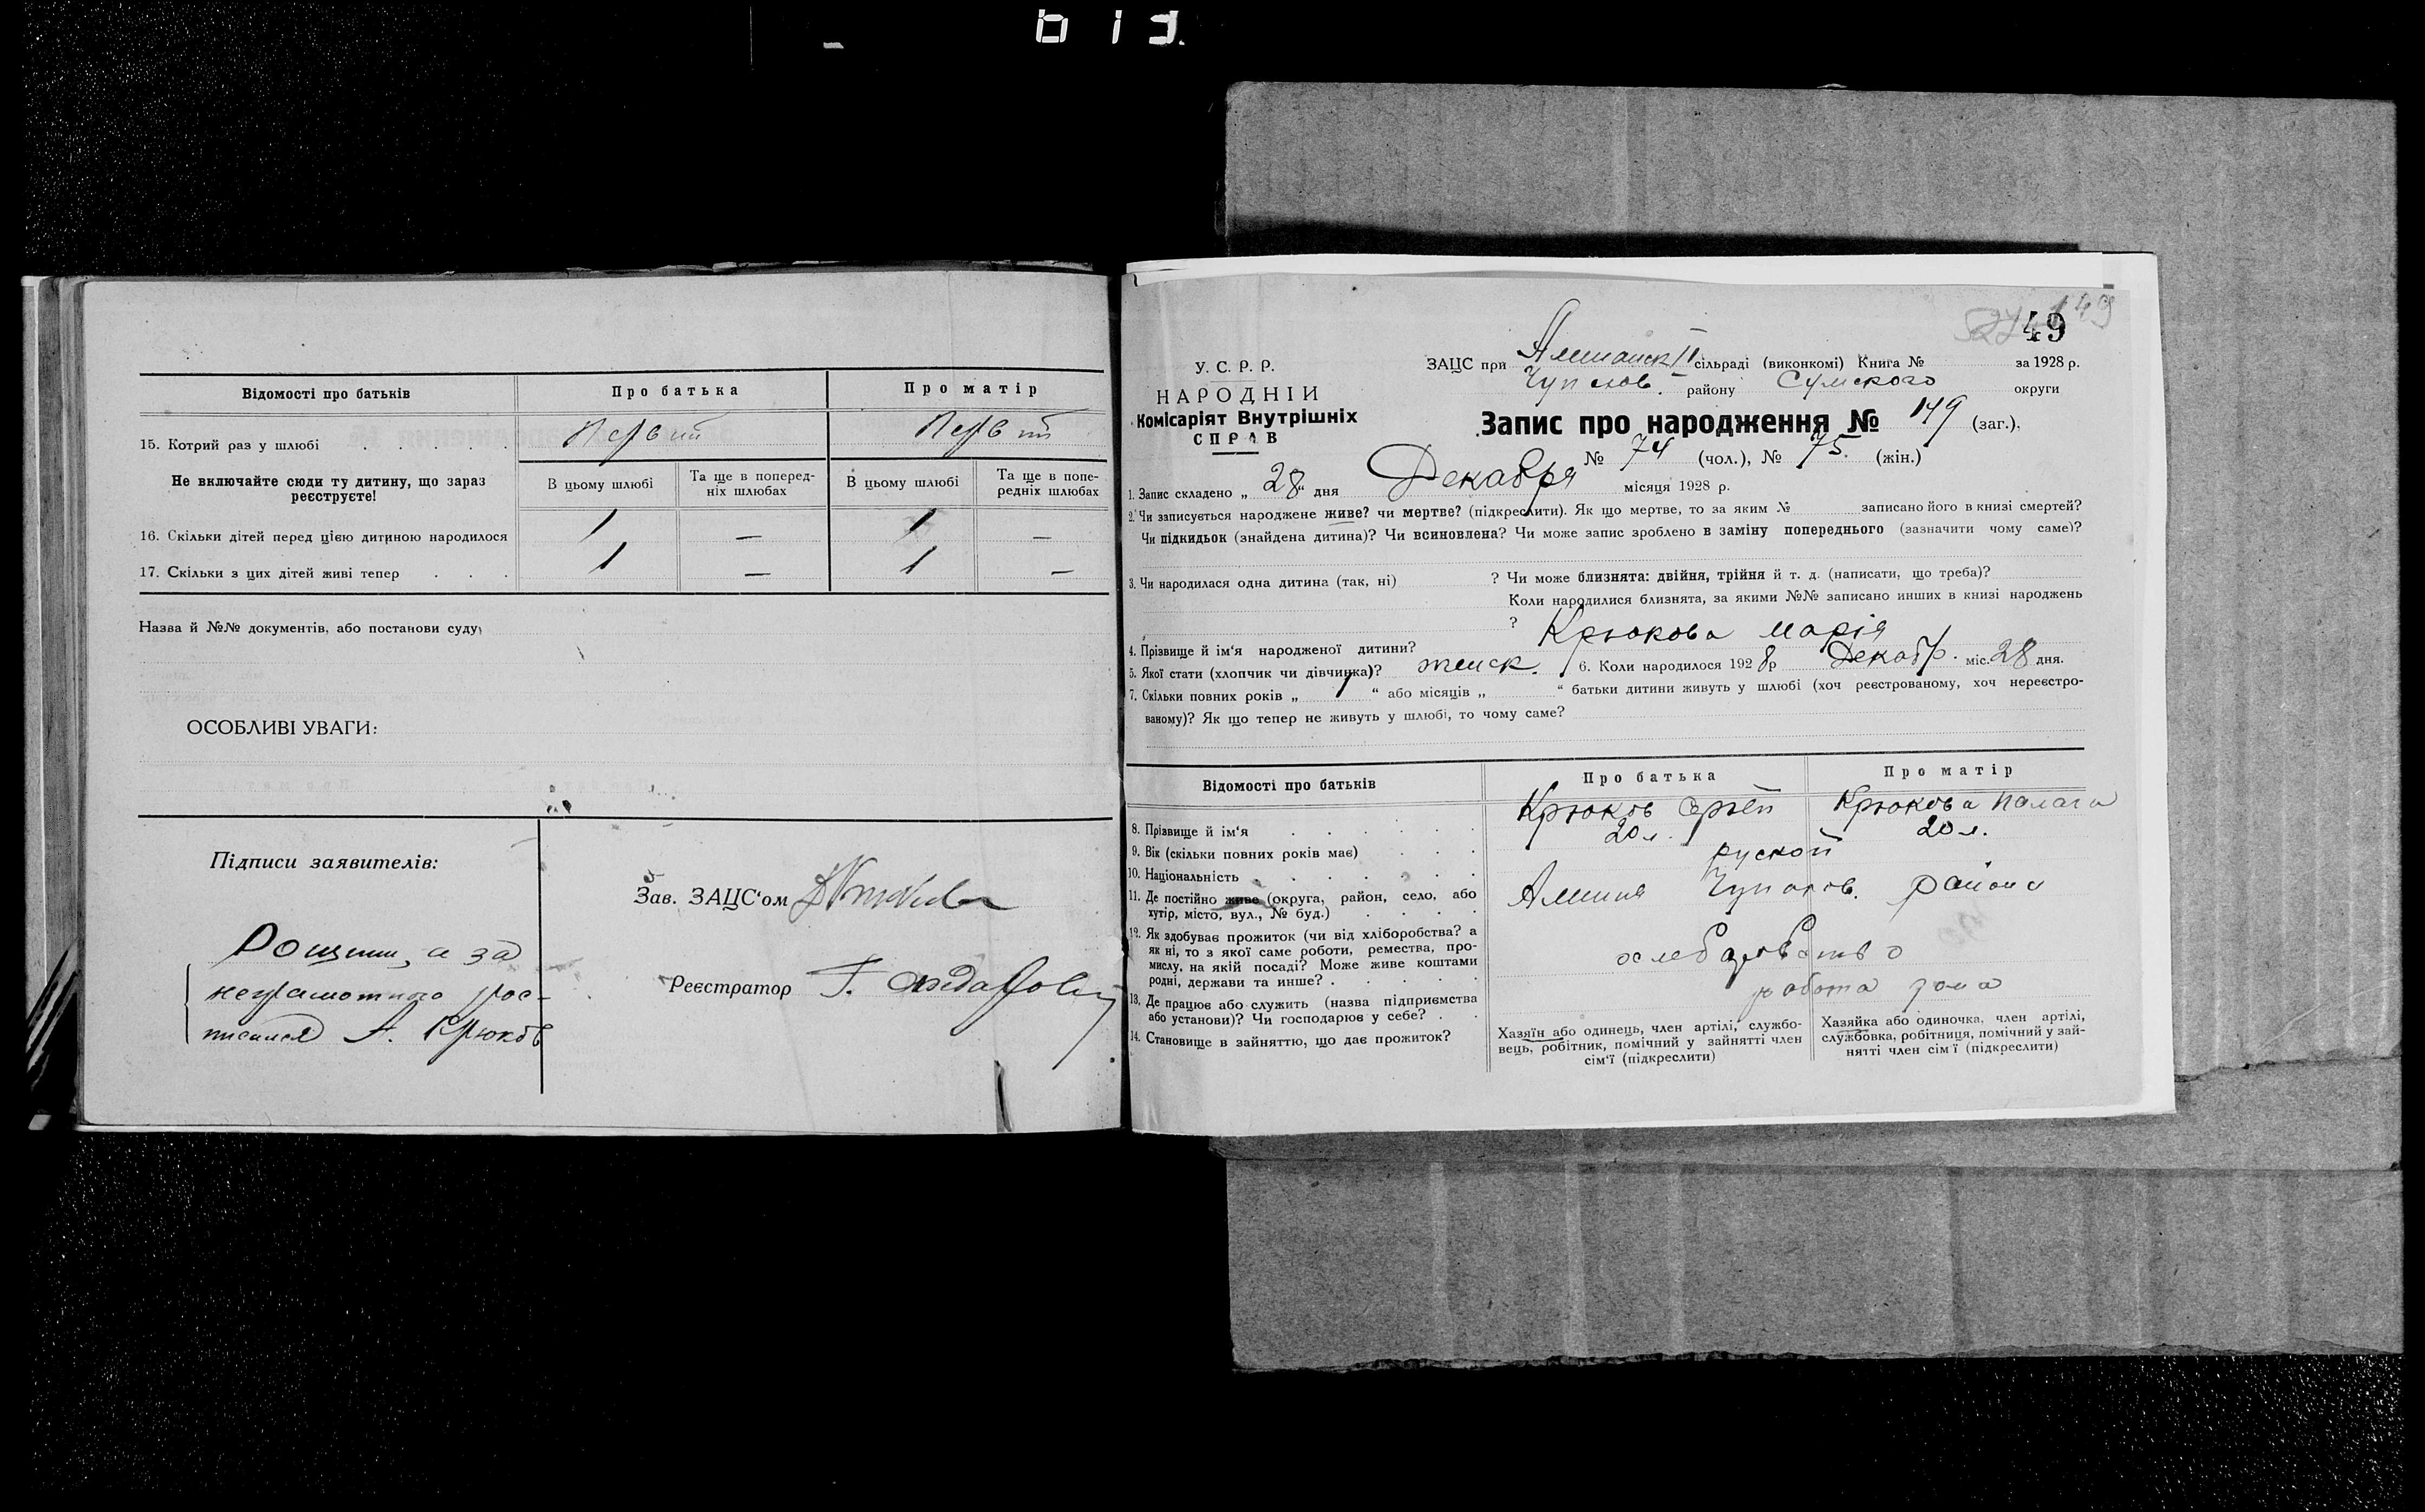 Відомості про батьків Про батька Про матір
15. Котрий раз у шлюбі . . . . . Первий Первий
Не включайте сюди ту дитину, що зараз реєструєте!
В цьому шлюбі Та ще в поперед-ніх шлюбах В цьому шлюбі Та ще в попе-редніх шлюбах
16. Скільки дітей перед цією дитиною народилося 1 — 1 —
17. Скільки з цих дітей живі тепер . . . 1 — 1 —
Назва й №№ документів, або постанови суду
ОСОБЛИВІ УВАГИ:
Підписи заявителів:
а за
неграмотного рос-
писался А. Крюков
Зав. ЗАЦС'ом
Реєстратор Г.
49
У. С. Р. Р.
НАРОДНІЙ
Комісаріят Внутрішніх
СПРАВ
ЗАЦС при сільраді (виконкомі) Книга № за 1928 р.
району Сумского округи
Запис про народження № 149 (заг.).
№ 74 (чол.), № 75. (жін.)
1. Запис складено „ 28 “ дня Декабря місяця 1928 р.
2. Чи записується народжене живе? чи мертве? (підкреслити). Як що мертве, то за яким № записано його в книзі смертей?
Чи підкидьок (знайдена дитина)? Чи всиновлена? Чи може запис зроблено в заміну попереднього (зазначити чому саме)?
3. Чи народилася одна дитина (так, ні) ? Чи може близнята: двійня, трійня й т. д. (написати, що треба)?
Коли народилися близнята, за якими №№ записано инших в книзі народжень
?
4. Прізвище й ім'я народженої дитини? Крюкова Марія
5. Якої стати (хлопчик чи дівчинка)? женск. 6. Коли народилося 1928 р Декабр. міс. 28 дня.
7. Скільки повних років „ 1 “ або місяців „ “ батьки дитини живуть у шлюбі (хоч реєстрованому, хоч нереєстро-
ваному)? Як що тепер не живуть у шлюбі, то чому саме?
Відомості про батьків Про батька Про матір
8. Прізвище й ім'я . . . . . . Крюков Сергей Крюкова Палага
9. Вік (скільки повних років має) . . . 20 л. 20 л.
10. Національність . . . . . . руской
11. Де постійно живе (округа, район, село, або
хутір, місто, вул., № буд.) . . . . района
12. Як здобуває прожиток (чи від хліборобства? а
як ні, то з якої саме роботи, ремества, про-
мислу, на якій посаді? Може живе коштами
родні, держави та инше? . . . . .
13. Де працює або служить (назва підприємства
або установи)? Чи господарює у себе? . . работа дома
14. Становище в зайняттю, що дає прожиток?
Хазяїн або одинець, член артілі, службо-
вець, робітник, помічний у зайнятті член
сім'ї (підкреслити)
Хазяйка або одиночка, член артілі,
службовка, робітниця, помічний у зай-
нятті член сім'ї (підкреслити)